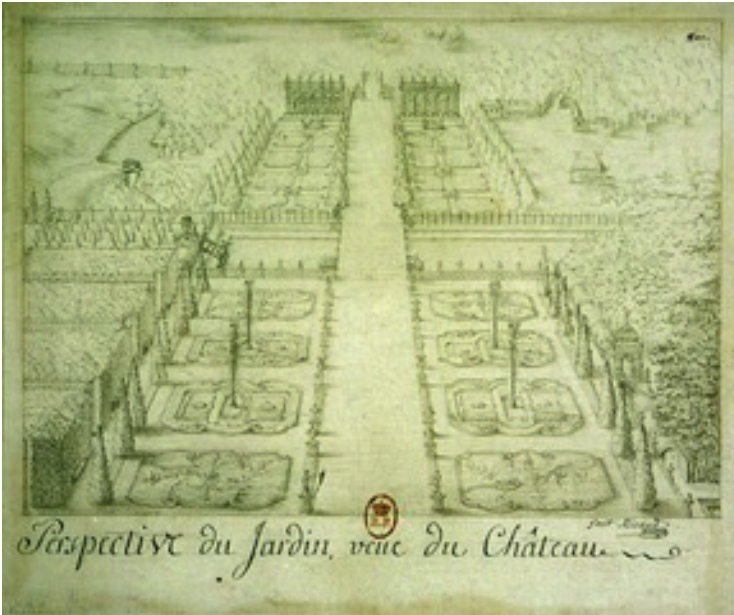 Perspective du Jardin, veue du Château